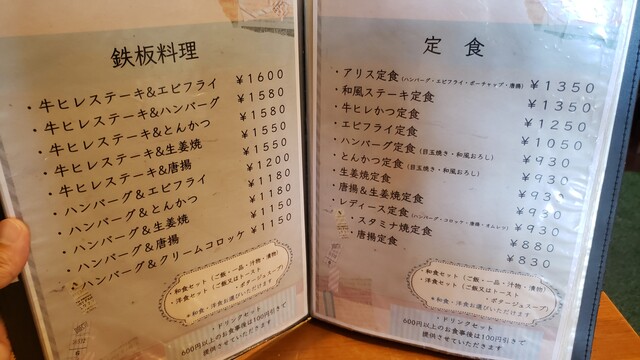 鉄板料理
・牛ヒレステーキ&エビフライ ¥1600
・牛ヒレステーキ&ハンバーグ ¥1580
・牛ヒレステーキ&とんかつ ¥1580
・牛ヒレステーキ&生姜焼 ¥1550
・牛ヒレステーキ&唐揚 ¥1550
・ハンバーグ&エビフライ ¥1200
・ハンバーグ&とんかつ ¥1180
・ハンバーグ&生姜焼 ¥1180
・ハンバーグ&唐揚 ¥1150
・ハンバーグ&クリームコロッケ ¥1150
和食セット(ご飯・一品・汁物・漬物)
・洋食セット(ご飯又はトースト
・ポタージュスープ)
*和食・洋食お選びいただけます
・ドリンクセット
600円以上のお食事後は100円引きで
提供させていただきます
定食
・アリス定食(ハンバーグ・エビフライ・ポークチャップ・唐揚) ¥1350
・和風ステーキ定食 ¥1350
・牛ヒレかつ定食 ¥1250
・エビフライ定食 ¥1050
・ハンバーグ定食(目玉焼き・和風おろし) ¥930
・とんかつ定食(目玉焼き・和風おろし) ¥930
・生姜焼定食 ¥930
・唐揚&生姜焼定食 ¥930
・レディース定食(ハンバーグ・コロッケ・唐揚・オムレツ) ¥930
・スタミナ焼定食 ¥880
・唐揚定食 ¥830
和食セット(ご飯・一品・汁物・漬物)
・洋食セット(ご飯又はトースト
・ポタージュスープ)
*和食・洋食お選びいただけます
・ドリンクセット
600円以上のお食事後は100円引きで
提供させていただきます